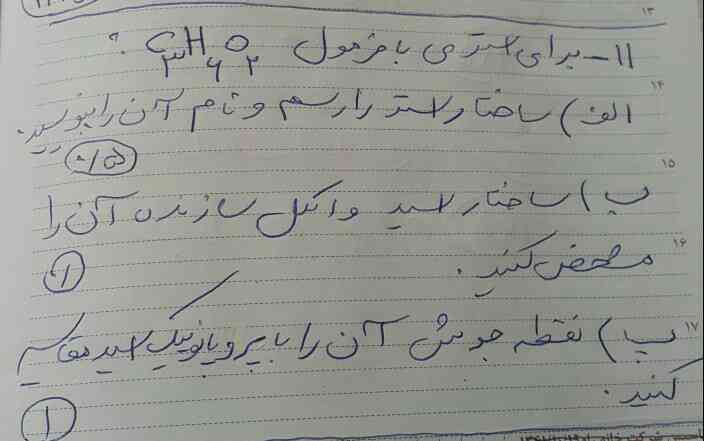 ۱۳
۱۱- برای استری با فرمول C۳H۶O۲ :
۱۴
الف) ساختار استر را رسم و نام آن را بنویسید.
۱۵
ب) ساختار اسید و الکل سازنده آن را
۱۶
مشخص کنید.
۱۷
پ) نقطه جوش آن را با پروپانوئیک اسید مقایسه
کنید.
۱